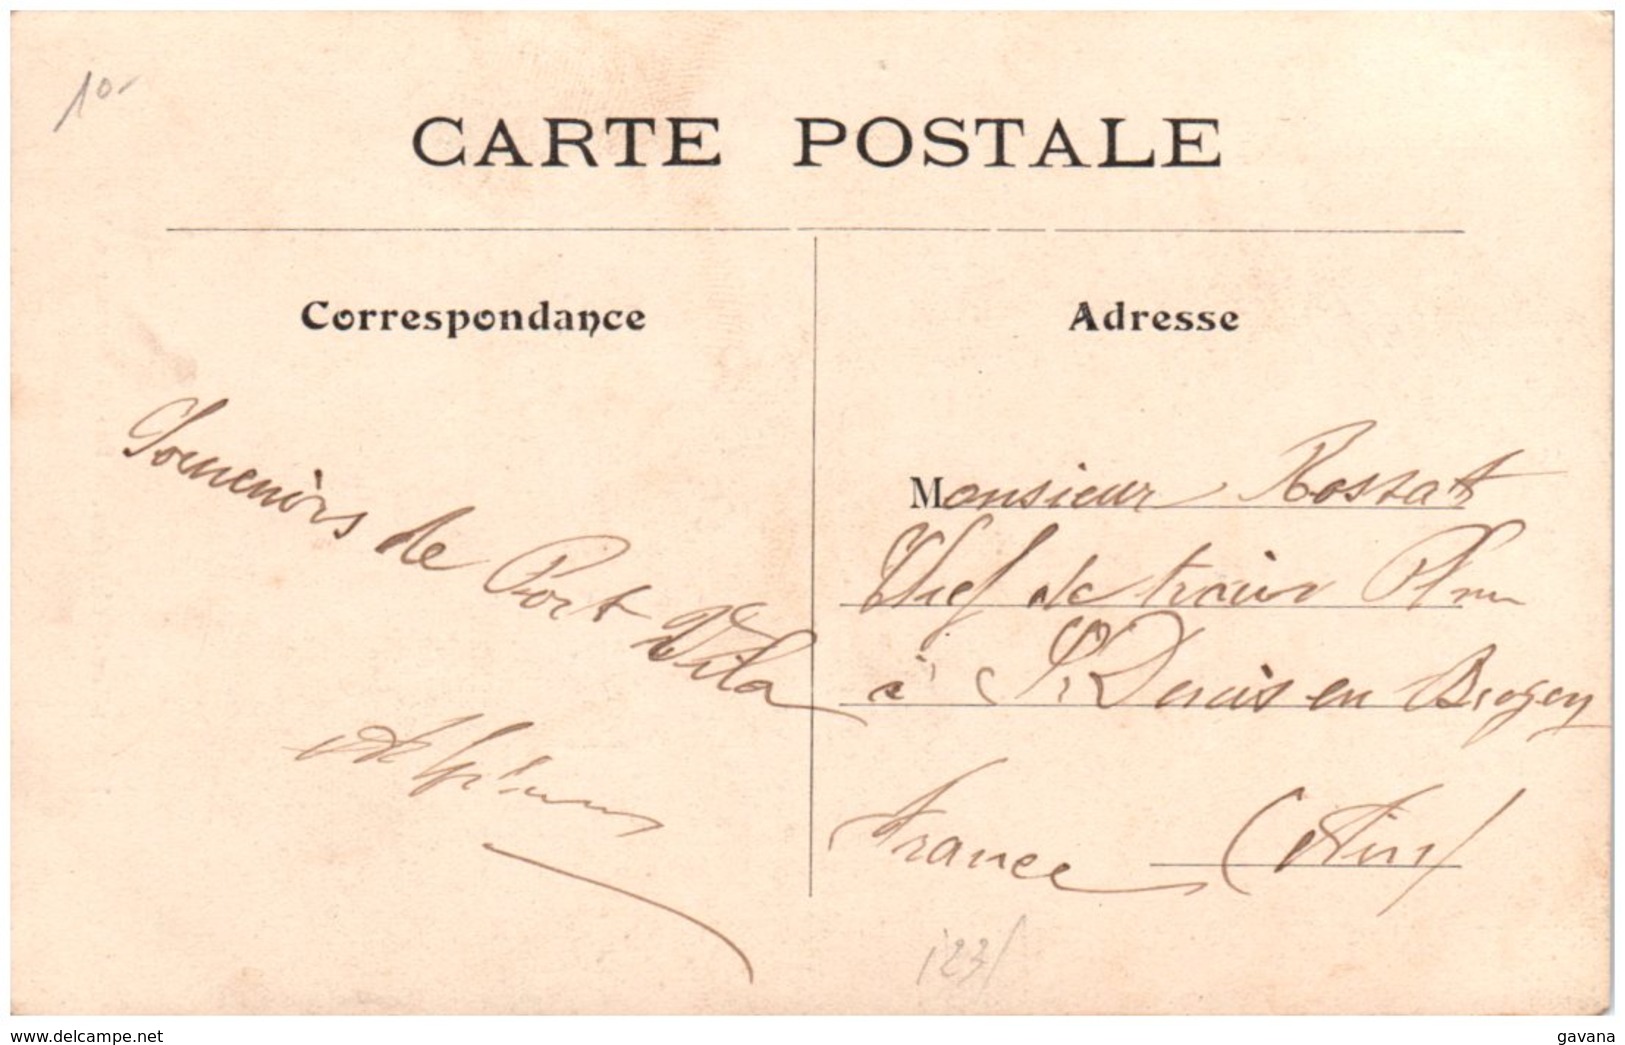 10-
CARTE POSTALE
Correspondance
Souvenirs de Port Vila
Adresse
Monsieur Rossat
Chef de train Plm
à St Denis en Bugey
France (Ain)
123
www.delcampe.net
gavana